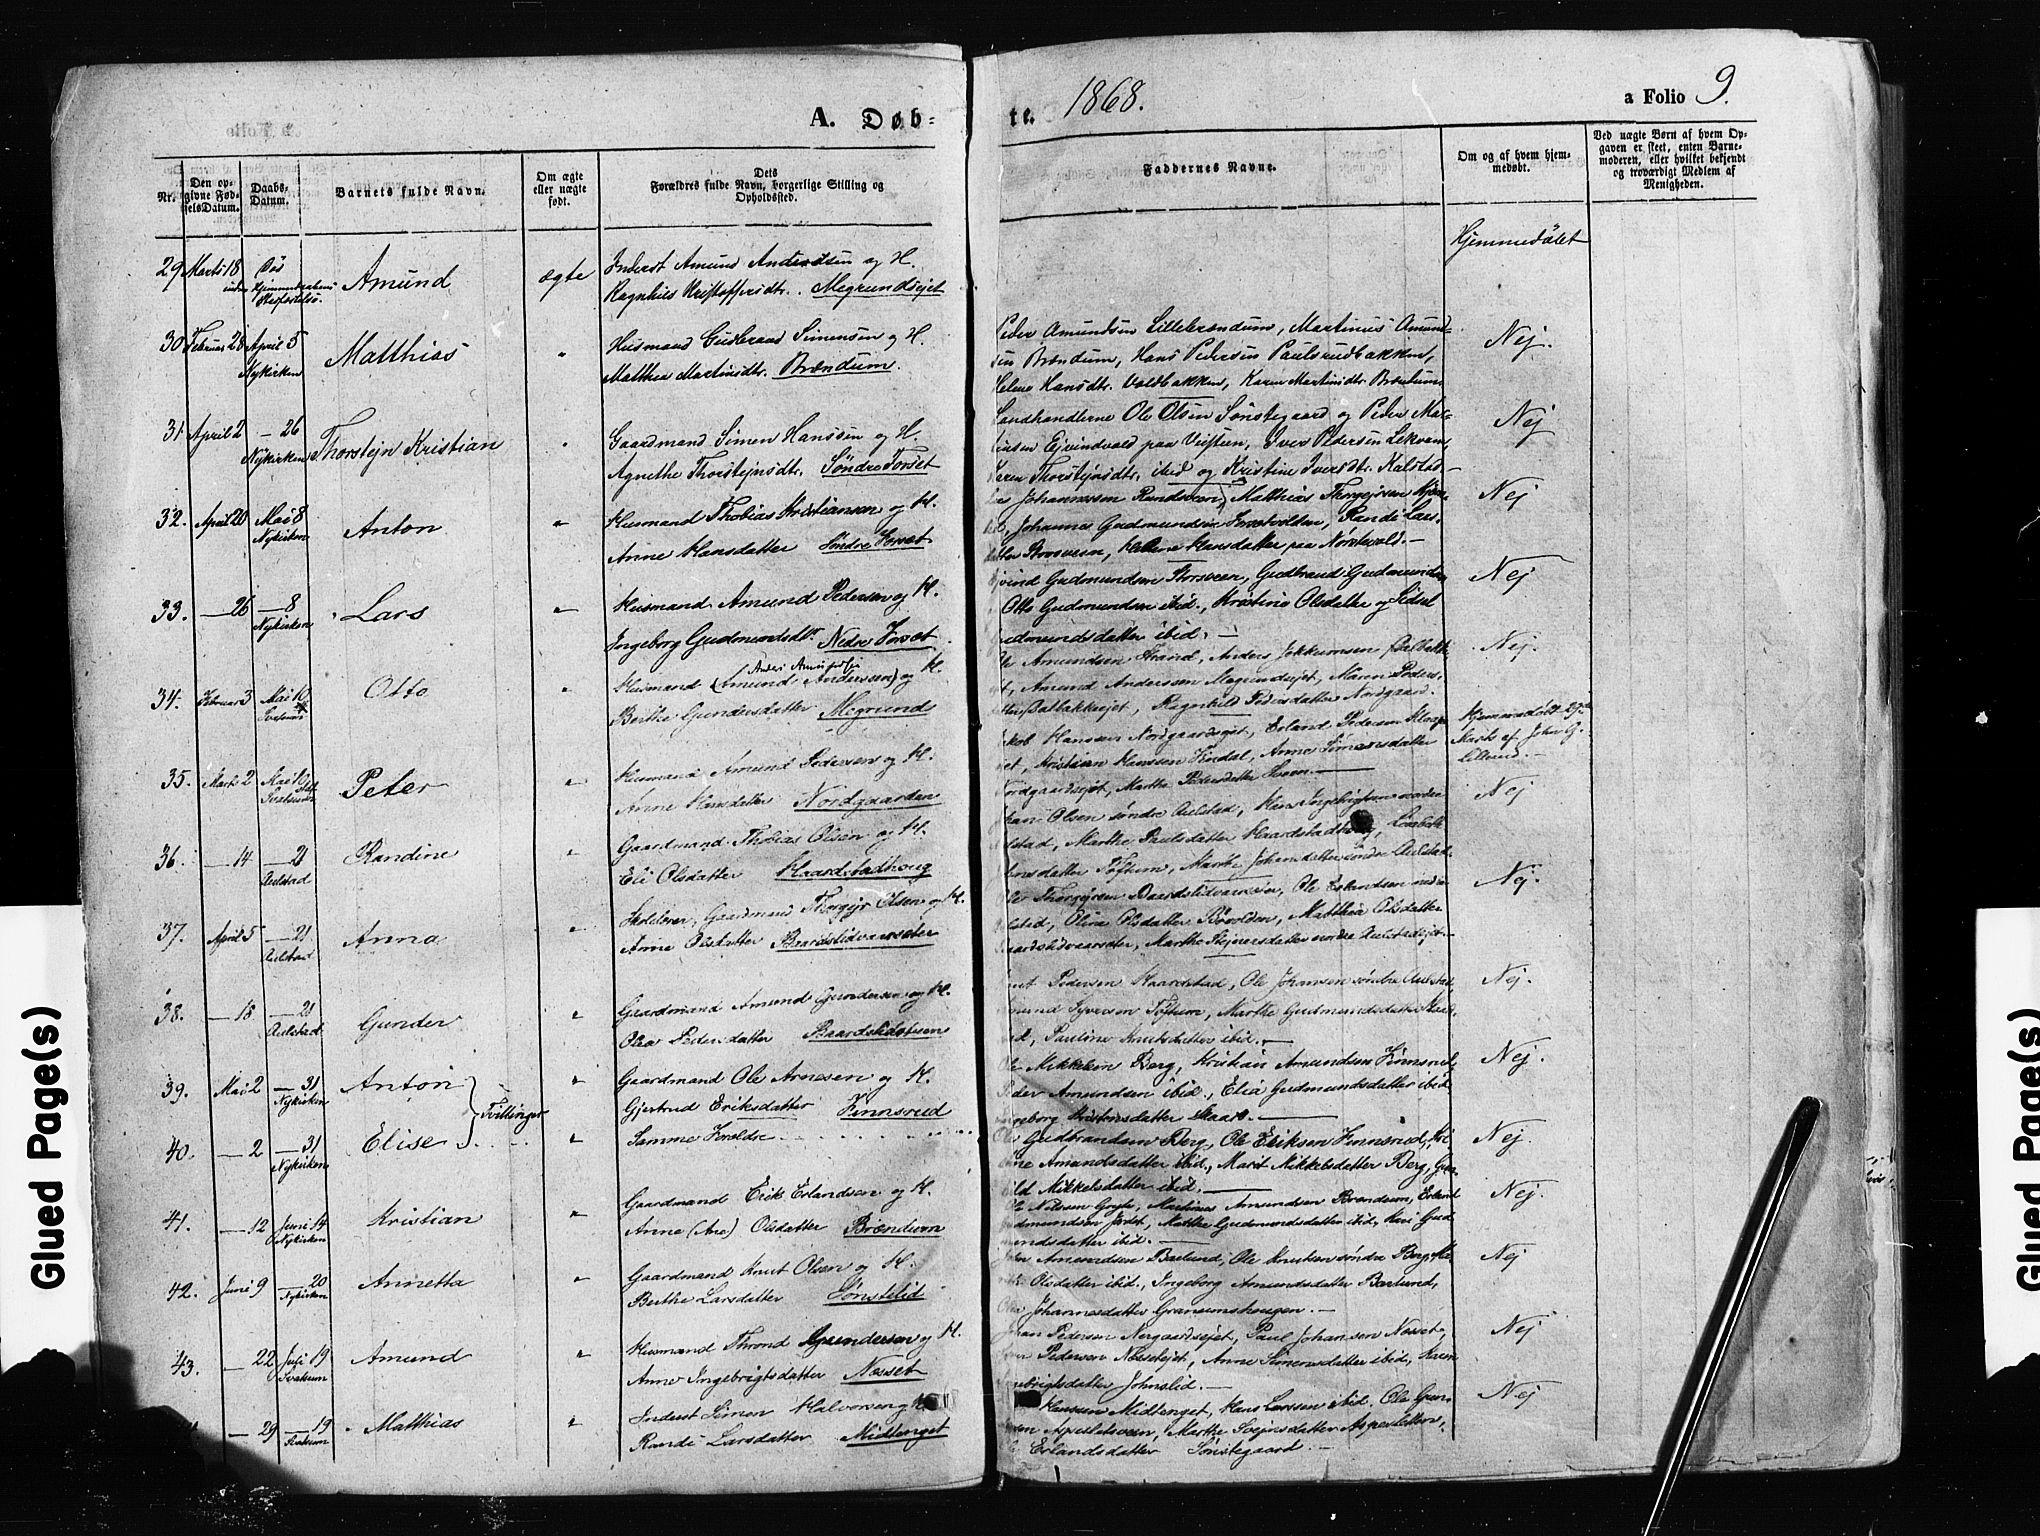 A. Døb-
te. 1868.
a Folio 9.
Nr.
Den op-
givne Fød-
selsDatum.
Daabs-
Datum.
Barnets fulde Navn.
Om ægte
eller uægte
født.
Dets
Forældres fulde Navn, borgerlige Stilling og
Opholdssted.
Faddernes Navne.
Om og af hvem hjem-
medøbt.
Ved uægte Børn af hvem Op-
gaven er skeet, enten Barne-
moderen, eller hvilket bekjendt
og troværdigt Medlem af
Menigheden.
29 Marts 18 Amund ægte Inderst Amund Andersen og H.
Ragnhild Kristoffersdtr. Megrundsejet
Hjemmedøbt
30 Februar 28 April 5 Matthias " Husmand Gudbrand Simensen og H.
Nykirken Matthea Martinsdtr. Brændum.
Peder Amundsen Lillebrændum, Martinus Amund-
sen Brændum, Hans Pedersen Paulsrudbakken,
Helene Hansdtr. Voldbakken, Karen Martinsdtr. Brændum
Nej.
31 April 2 — 26 Thorstejn Kristian " Gaardmand Simen Hanssen og H.
Nykirken Agnethe Thorstejnsdtr. Søndre Forset
Landhandlerne Ole Olsen Sønstegaard og Peder Mat-
Ejvindvold paa Vejsten, Iver Pedersen Lekvam,
Karen Thorstejnsdtr. ibid og Kristine Iversdtr. Kalstad —
Nej
32. April 20 Mai 8 Anton " Husmand Thobias Kristiansen og H.
Nykirken Anne Hansdatter Søndre Forset
Johannessen Rundsveen, Matthias Thorgejrsen
Johannes Gudmundsen Forsetvolden, Randi Lars-
datter Storsveen, Helene Hansdatter paa Norstevold. —
Nej
33. — 26 — 8 Lars " Husmand Amund Pedersen og H.
Nykirken Ingeborg Gudmundsdtr Nedre Forset
Ejvind Gudmundsen Storsveen, Gudbrand Gudmundsen
Otto Gudmundsen ibid., Kristine Olsdatter og Sidsel
Gudmundsdatter ibid. —
Nej
34. Februar 3 Mai 10 Otto " Husmand (Amund Anderssen) og H.
Svatsum Berthe Gundersdatter Megrund
Ole Amundsen Strand, Anders Jokkumsen
Amund Andersen Megrundsejet, Maren Peders-
datter Dalbakkejet, Ragnhild Pedersdatter Nordgaard.
Nej.
35. Marts 2 Mai 10 Peter " Husmand Amund Pedersen og H.
Svatsum Anne Hansdatter Nordgaarden
Jakob Hanssen Nordgaardsejet, Erland Pedersen
Kristian Hanssen Findal, Anne Simensdatter
Nordgaardsejet, Marthe Pedersdatter
Hjemmedøbt
Marts af John G.
36. — 14 — 21 Randine " Gaardmand Thobias Olsen og H.
Aulstad Eli Olsdatter Kaardstadhoug
Johan Olsen søndre Aulstad, Hans Ingebrigtsen nordre
Aulstad, Marthe Paulsdatter Kaardstadhoug,
Toftum, Marthe Johansdatter søndre Aulstad
Nej
37. April 5 — 21 Anna " Skolelærer, Gaardmand Thorgejr Olsen og H.
Aulstad Anne Olsdatter Baardslidvaarsæter
Ole Thorgejrsen Baardslidvaarsæter, Ole Erlandsen nedre
Aulstad, Oline Olsdatter Bøvolden, Matthea Olsdatter
Baardslidvaarsæter, Marthe Stejnersdatter nordre Aulstadejet. —
Nej.
38. — 18 — 21 Gunder " Gaardmand Amund Gundersen og H.
Aulstad Olea Pedersdatter Baardslidstuen
Knut Pedersen Kaardstad, Ole Johansen søndre Aulstad,
Amund Syversen Toftum, Marthe Gudmundsdatter
Pauline Knutsdatter ibid. —
Nej.
39. Mai 2 — 31 Anton } Tvillinger " Gaardmand Ole Arnesen og H.
Nykirken Gjertrud Eriksdatter Finnsrud
Ole Mikkelsen Berg, Kristian Amundsen Finnsrud,
Peder Amundsen ibid., Elia Gudmundsdatter ibid
Ingeborg Kristensdatter Skaard. —
Nej.
40. — 2 — 31 Elise " Samme Foreldre
Nykirken
Ole Gudbrandsen Berg, Ole Eriksen Finnsrud,
Amundsdatter ibid., Marit Mikkelsdatter Berg, Gun-
hild Mikkelsdatter ibid. —
Nej.
41. — 12 Juni 14 Kristian " Gaardmand Erik Erlandsen og H.
Nykirken Anne (Ane) Olsdatter Brændum
Ole Nilssen Gryte, Martinus Amundsen Brændum, Erland
Gudmundsen Forset, Matthea Gudmundsdatter ibid, Kari Gud-
mundsdatter ibid. —
Nej.
42. Juni 9 — 20 Annetta " Gaardmand Knut Olsen og H.
Nykirken Berthe Larsdatter Sønstelid
Amundsen Baklund, Ole Knutsen søndre Berg,
Olsdatter ibid., Ingeborg Amundsdatter Baklund,
Olea Johannesdatter Granumshougen. —
Nej
43. — 22 Juli 19 Amund " Husmand Thrond Gundersen og H.
Svatsum Anne Ingebrigtsdatter Næsset
Johan Pedersen Nergaardsejet, Paul Johansen Næsset,
Pedersen Næssetejet, Anne Simensdatter ibid, Karen
Ingebrigtsdatter Johnslid. —
Nej
— 29 — 19 Matthias " Inderst Simen Halvorsen og H.
Svatsum Randi Larsdatter Midtenget
Hanssen Midtenget, Hans Larssen ibid, Ole Gun-
Marthe Svejnsdatter
Erlandsdatter Sønstegaard. —
Nej
Glued Page(s)
Glued Page(s)